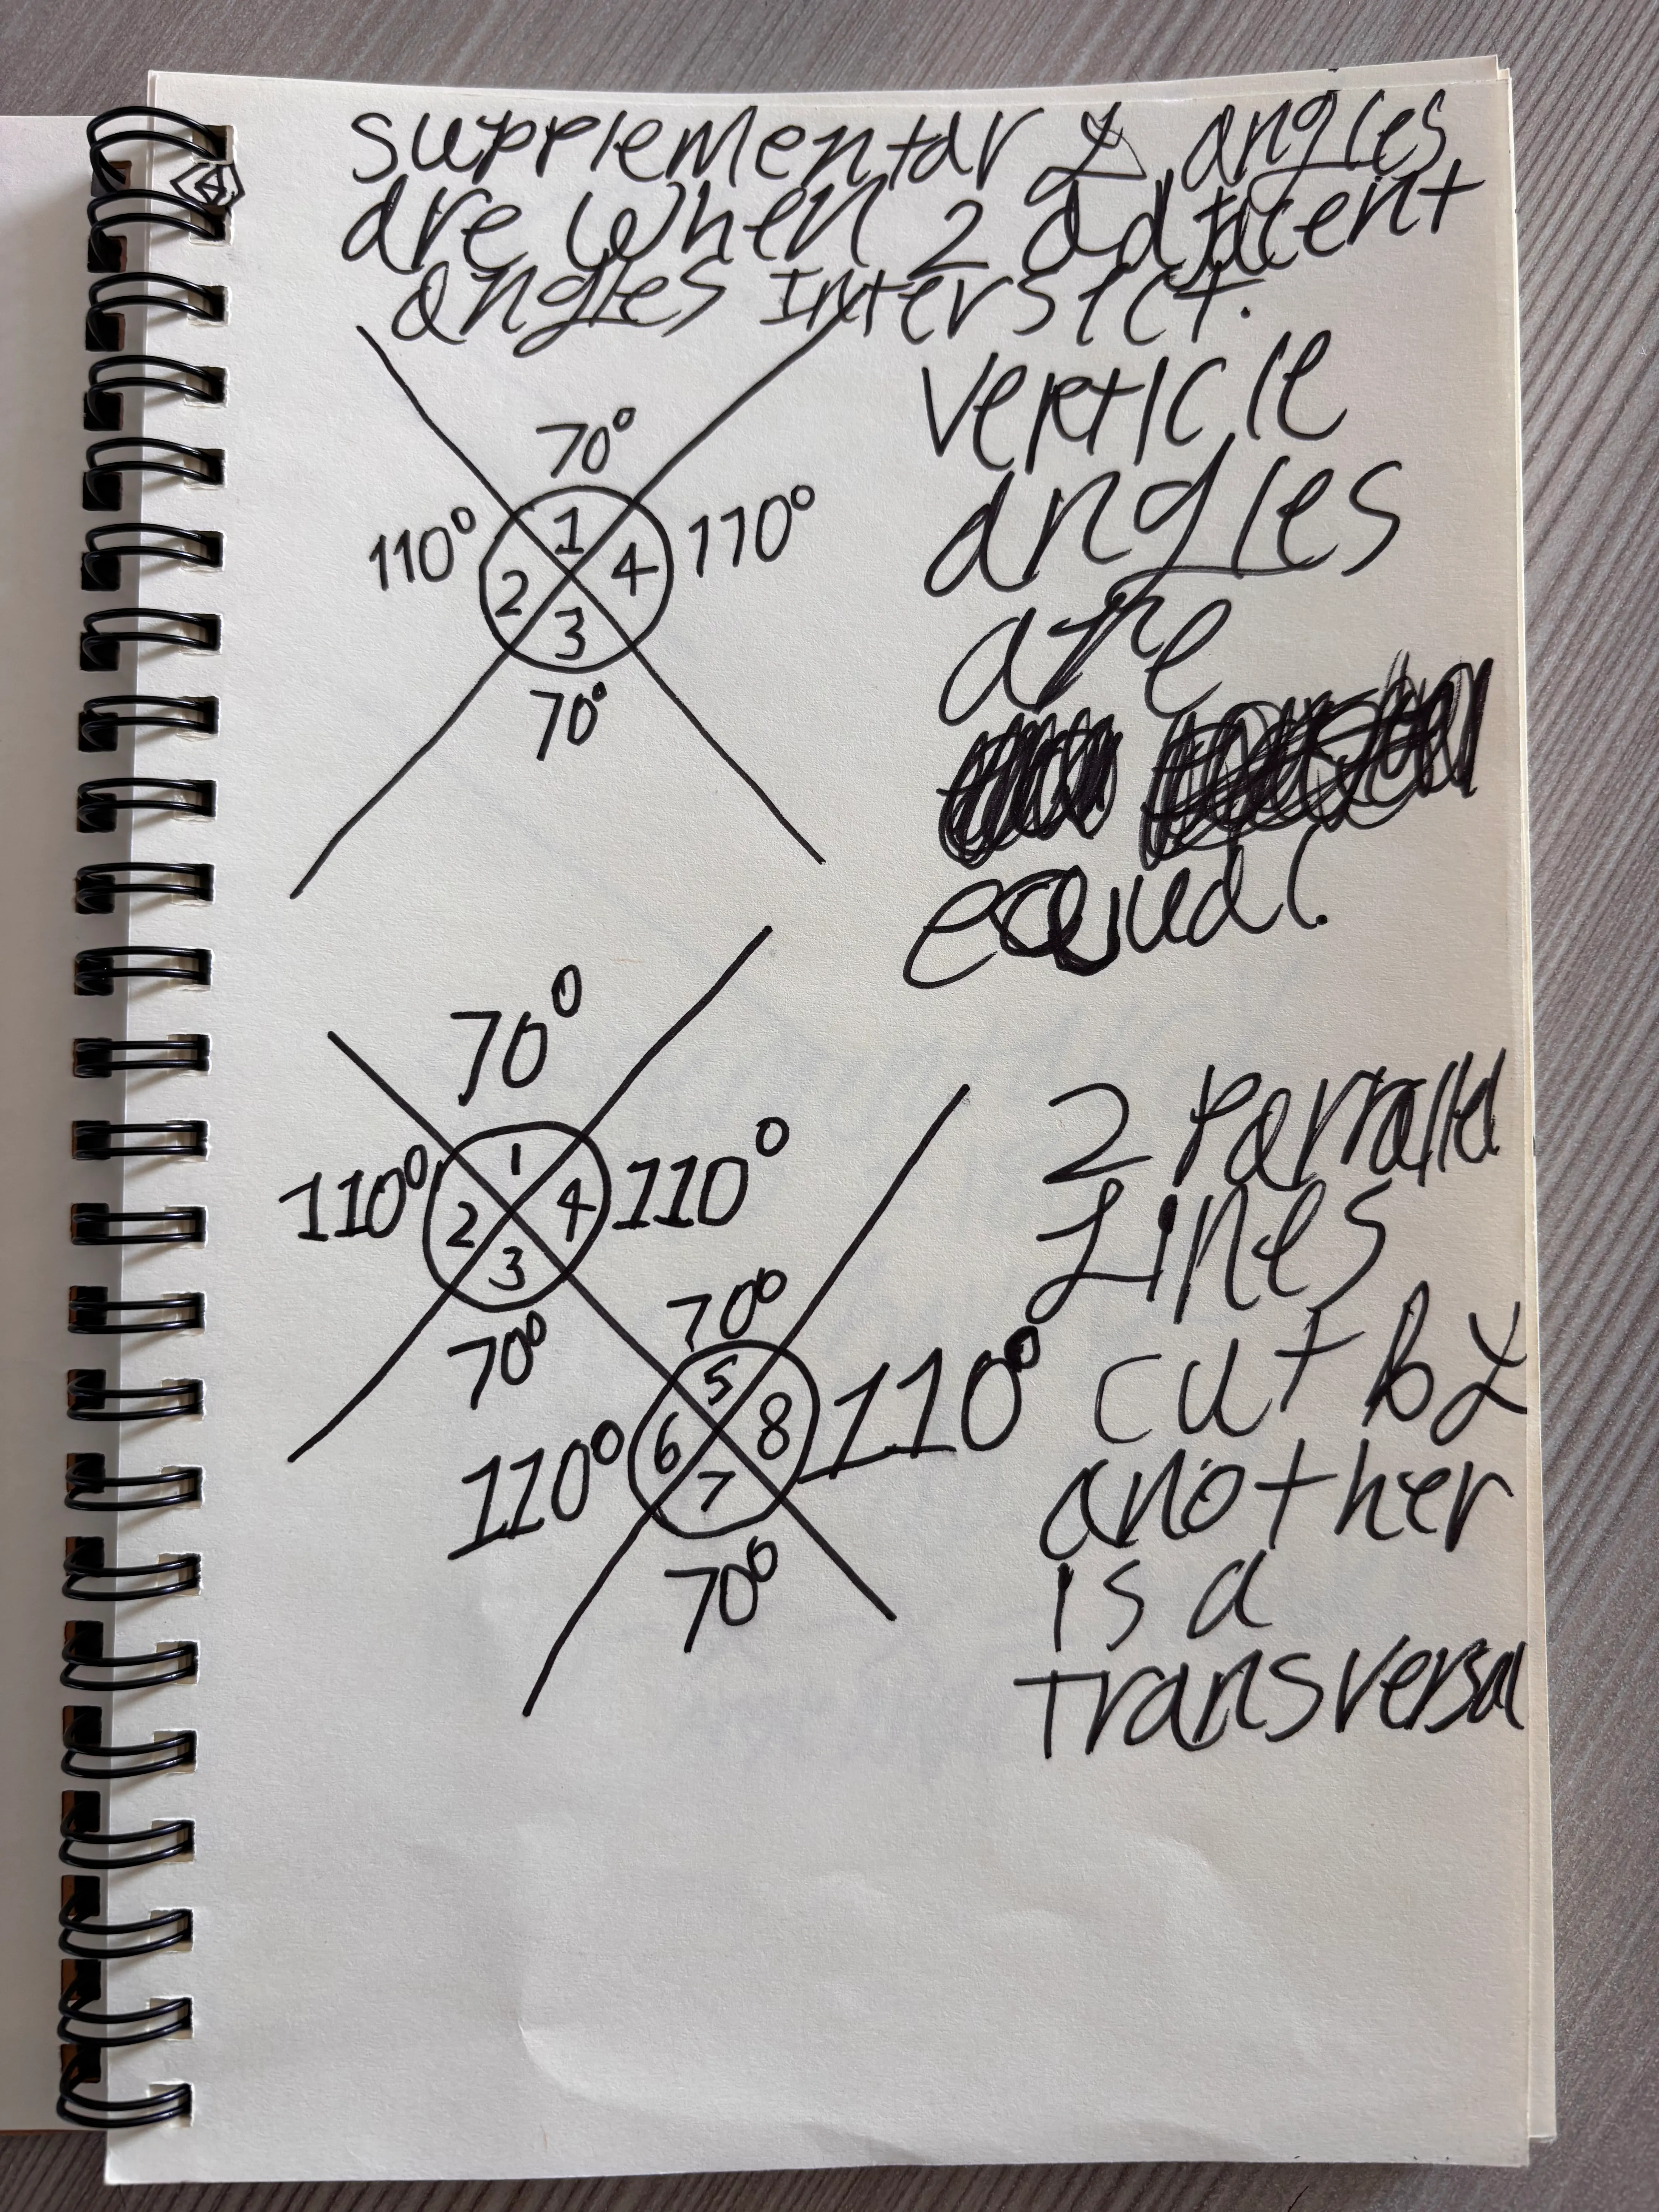 supplementary angles
are when 2 adjacent
angles intersect.
70°
110°
1
4
110°
2
3
70°
verticle
angles
are
equal.
70°
110°
1
2
4
3
110°
70°
70°
110°
5
6
8
7
110°
70°
2 Parralld
Lines
cut by
another
is a
transversal